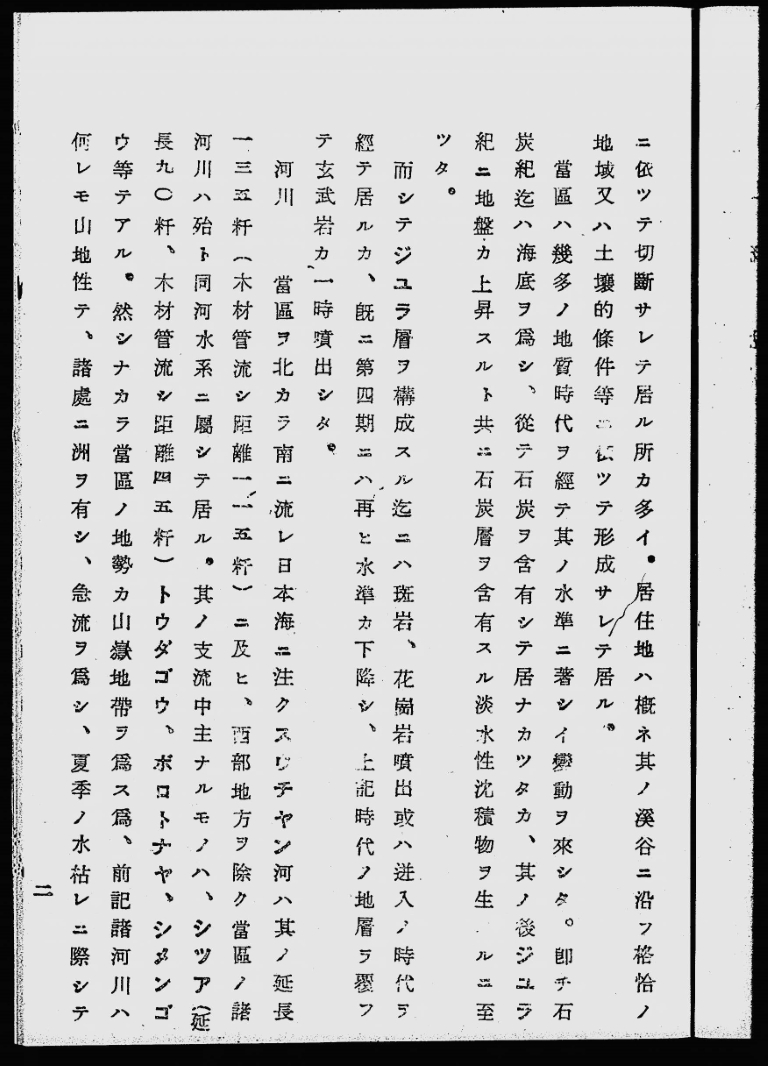 ニ依ツテ切斷サレテ居ル所カ多イ。居住地ハ槪ネ其ノ溪谷ニ沿フ格恰ノ
地域又ハ土壤的條件等ニ依ツテ形成サレテ居ル。
當區ハ幾多ノ地質時代ヲ經テ其ノ水準ニ著シイ變動ヲ來シタ。卽チ石
炭紀迄ハ海底ヲ爲シ、從テ石炭ヲ含有シテ居ナカツタカ、其ノ後ジユラ
紀ニ地盤カ上昇スルト共ニ石炭層ヲ含有スル淡水性沈積物ヲ生 ルニ至
ツタ。
而シテジユラ層ヲ構成スル迄ニハ斑岩、花崗岩噴出或ハ迸入ノ時代ヲ
經テ居ルカ、旣ニ第四期ニハ再ヒ水準カ下降シ、上記時代ノ地層ヲ覆フ
テ玄武岩カ一時噴出シタ。
河川 當區ヲ北カラ南ニ流レ日本海ニ注クスウチヤン河ハ其ノ延長
一三五粁（木材管流シ距離一一五粁）ニ及ヒ、西部地方ヲ除ク當區ノ諸
河川ハ殆ト同河水系ニ屬シテ居ル。其ノ支流中主ナルモノハ、シツア（延
長九〇粁、木材管流シ距離四五粁）トウダゴウ、ポロトナヤ、シメンゴ
ウ等テアル。然シナカラ當區ノ地勢カ山嶽地帶ヲ爲ス爲、前記諸河川ハ
何レモ山地性テ、諸處ニ洲ヲ有シ、急流ヲ爲シ、夏季ノ水枯レニ際シテ
二